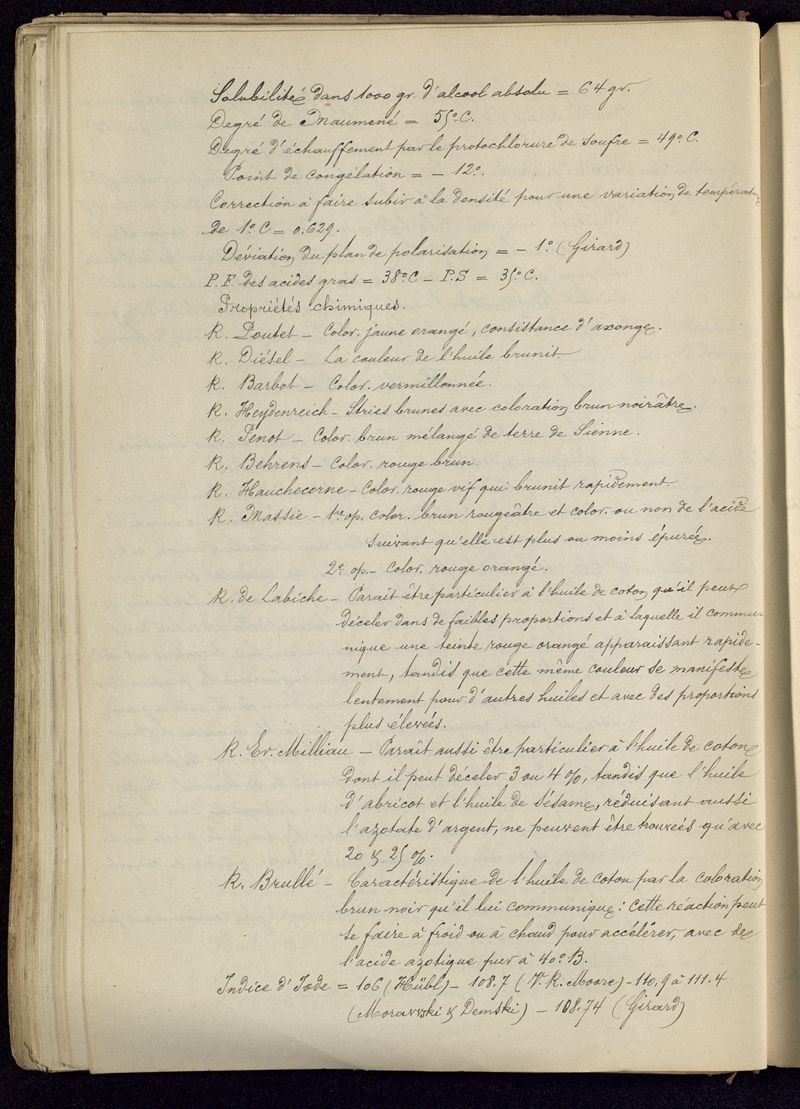 Solubilité dans 1000 gr. d'alcool absolu = 64 gr.
Degré de Maumené = 55° C.
Degré d'échauffement par le protochlorure de soufre = 49° C.
Point de congélation = - 12°.
Correction à faire subir à la densité pour une variation de température
de 1° C = 0.629.
Déviation du plan de polarisation = - 1° (Girard)
P.F. des acides gras = 38° C - P.S = 35° C.
Propriétés chimiques.
R. Poutet - Color. jaune orangé, consistance d'axonge.
R. Diésel - La couleur de l'huile brunit.
R. Barbot - Color. vermillonnée.
R. Heydenreich - Stries brunes avec coloration brun noirâtre.
R. Penot - Color. brun mélangé de terre de Sienne.
R. Behrens - Color. rouge brun.
R. Hauchecorne - Color. rouge vif qui brunit rapidement.
R. Massie - 1re op. Color. brun rougeâtre et color. ou non de l'acide
suivant qu'elle est plus ou moins épurée.
2e op. - Color. rouge orangé.
R. de Labiche - Paraît être particulier à l'huile de coton qu'il peut
déceler dans de faibles proportions et à laquelle il commu-
nique une teinte rouge orangé apparaissant rapide-
ment, tandis que cette même couleur se manifeste
lentement pour d'autres huiles et avec des proportions
plus élevées.
R. Er. Milliau - Paraît aussi être particulier à l'huile de coton
dont il peut déceler 3 ou 4 %, tandis que l'huile
d'abricot et l'huile de sésame, réduisant aussi
l'azotate d'argent, ne peuvent être trouvées qu'avec
20 & 25 %.
R. Brullé - Caractéristique de l'huile de coton par la coloration
brun noir qu'il lui communique : cette réaction peut
se faire à froid ou à chaud pour accélérer, avec de
l'acide azotique pur à 40° B.
Indice d'Iode = 106 (Hübl) - 108.7 (V. R. Moore) - 110,9 à 111.4
(Morawski & Demski) - 108.74 (Girard)